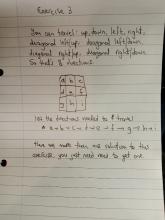 Exercise 3
You can travel up, down, left, right,
diagonal left/up, diagonal left/down,
diagonal right/up, diagonal right/down.
So that's 8 directions.
a b c
d e f
g h i
the directions needed to travel
a → b → c → → e → f → g → h → i
There are more than one solution to this
exercise, you just need need to get one.